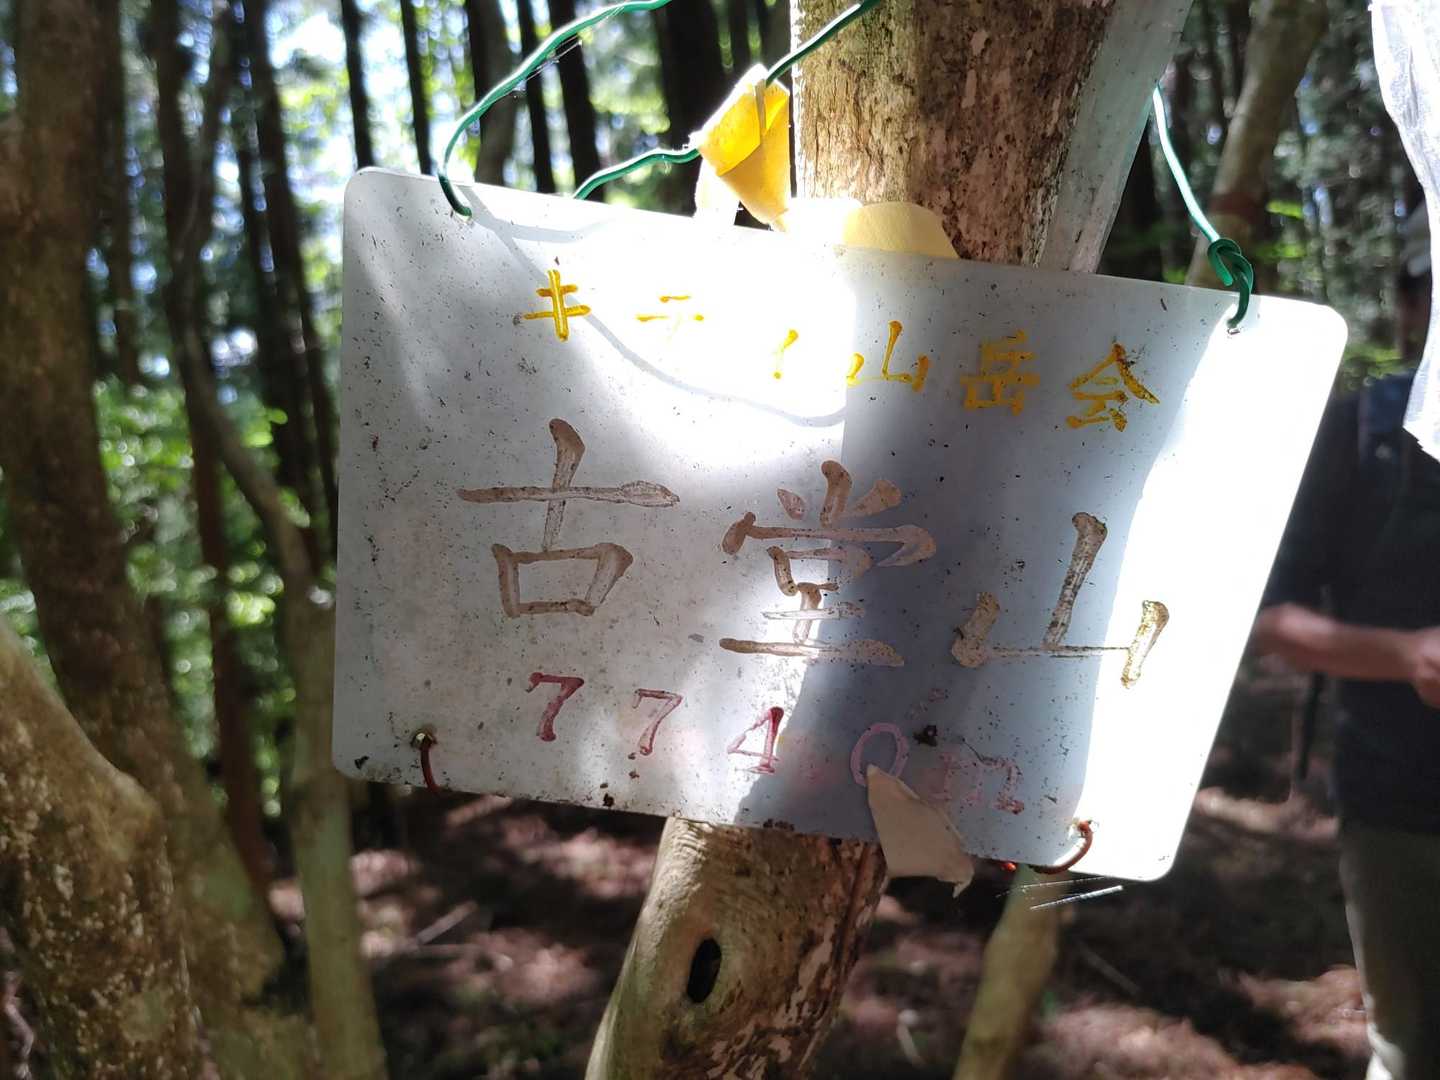 キティ山岳会
古堂山
774.0m